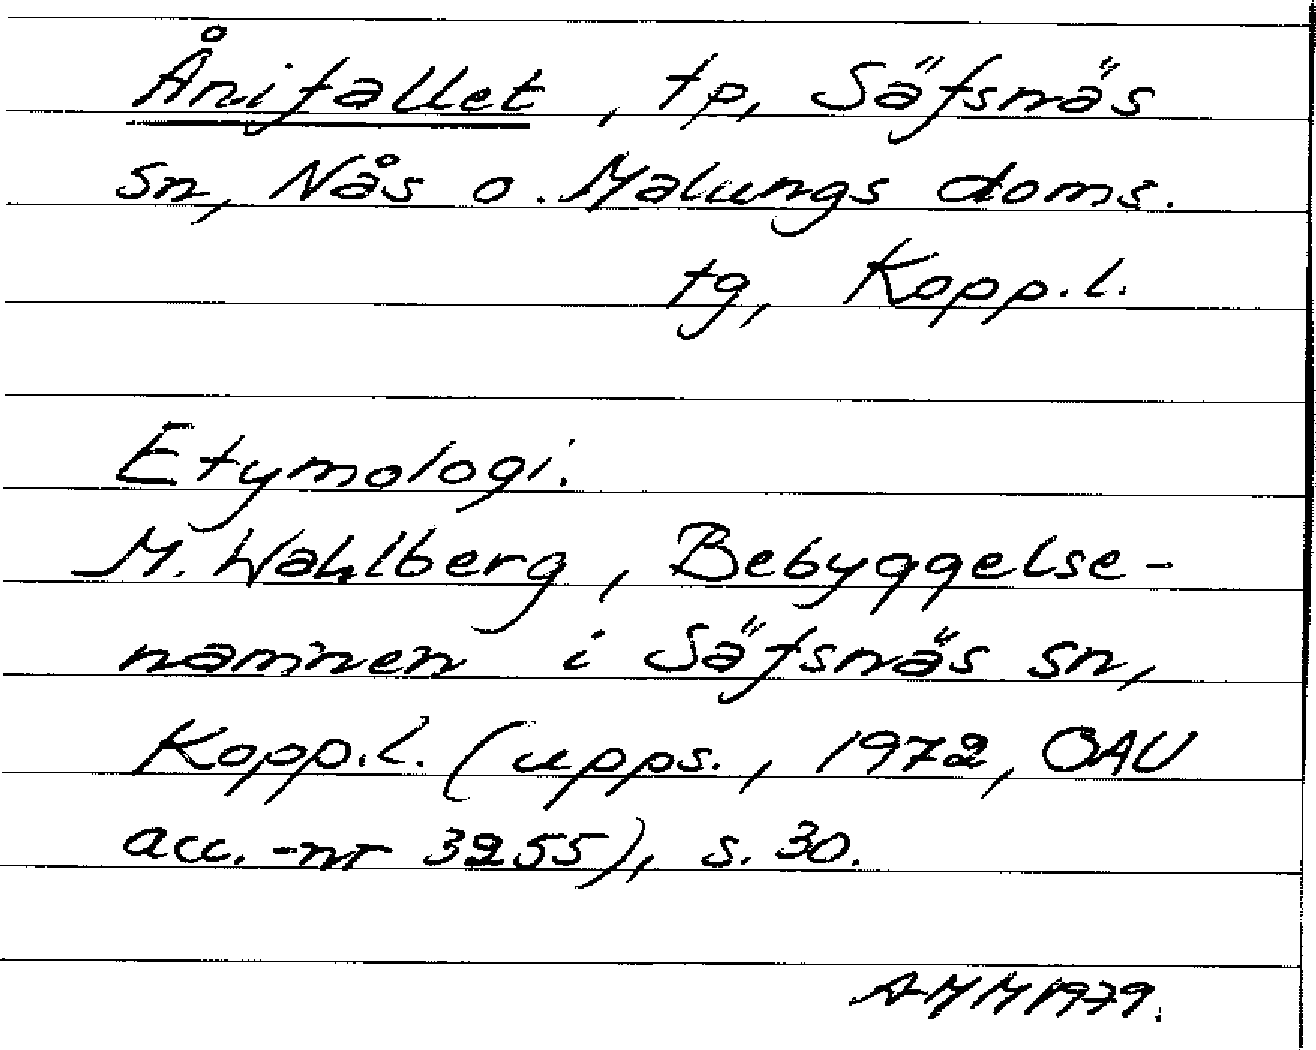 Ånifallet, tp, Säfsnäs
sn, Nås o. Malungs doms.
tg, Kopp.l.
Etymologi.
M. Wahlberg, Bebyggelse-
namnen i Säfsnäs sn,
Kopp.l. (upps., 1972, OAU
acc.-nr 3255), s. 30.
AMM 1979.